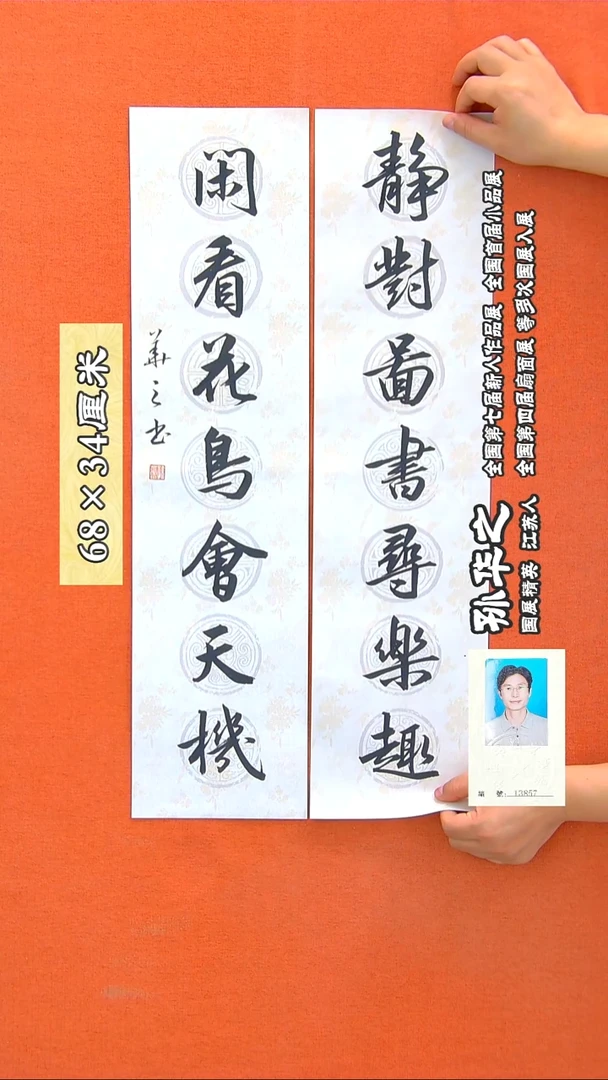 静對啚書尋樂趣
闲看花鳥會天機
華之书
68×34厘米
孙华之
国展精英 江苏人
全国第七届新人作品展 全国首届小品展
全国第四届扇面展 等多次国展入展
編 號：13857